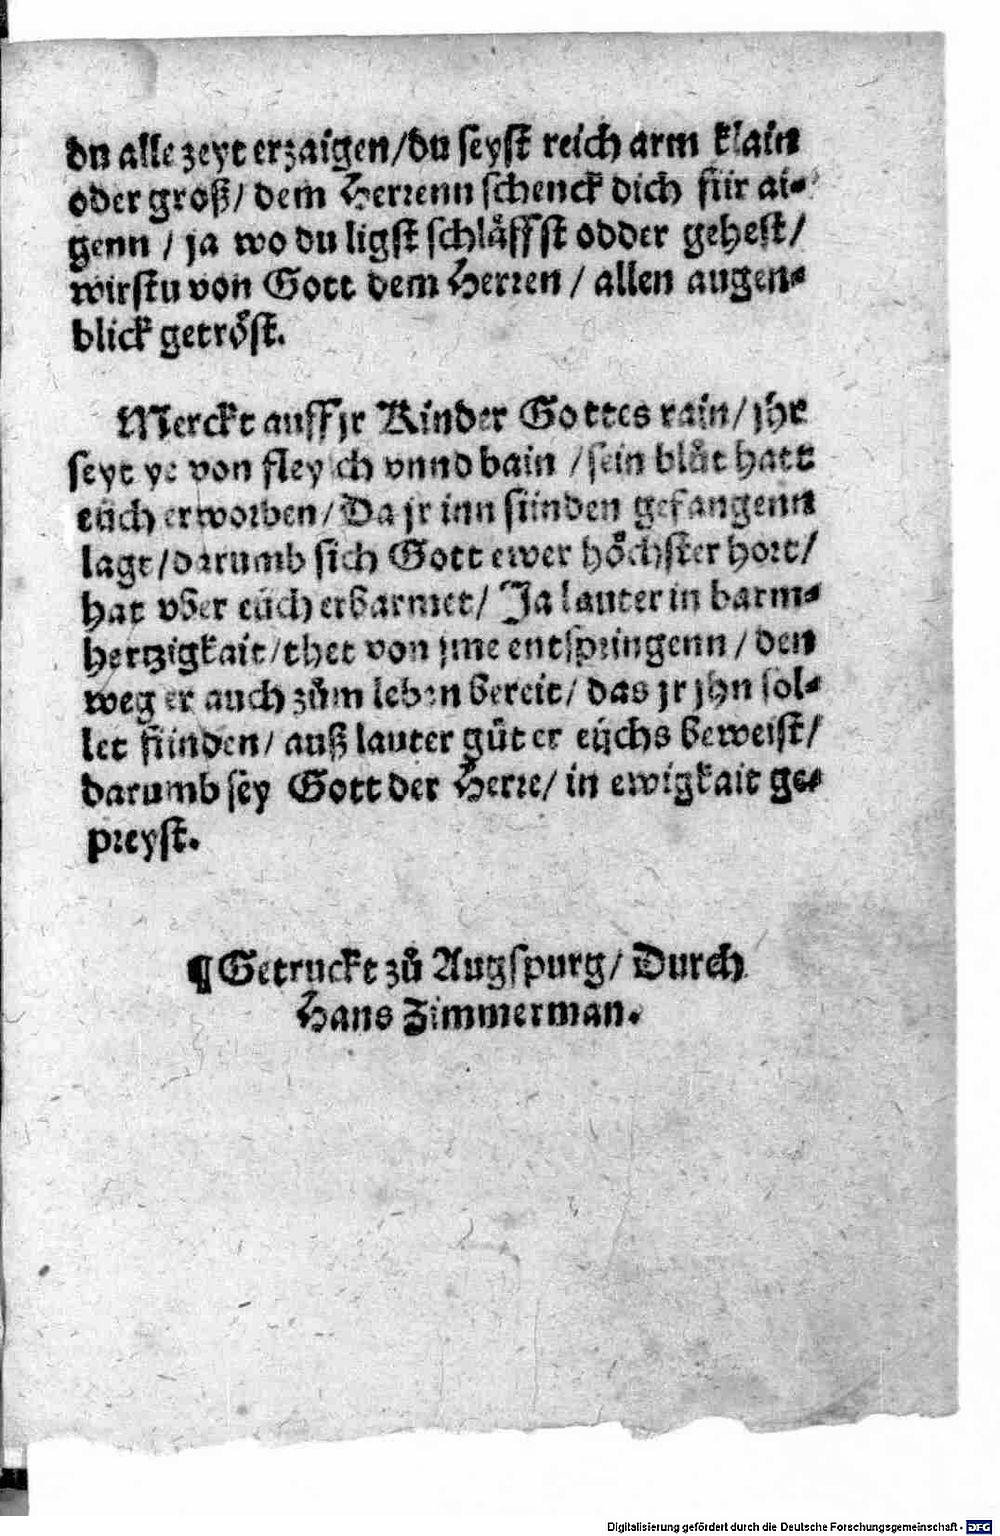 du alle zeyt erzaigen/du seyst reich arm klain
oder groß/ dem Herrenn schenck dich für ai-
genn / ja wo du ligst schlåffst odder gehest/
wirstu von Gott dem Herren / allen augen-
blick getröst.
Merckt auff jr Kinder Gottes rain/ jhr
seyt ye von fleysch vnnd bain /sein blůt hatt
eüch erworben/ Da jr inn sünden gefangenn
lagt/darumb sich Gott ewer höchster hort/
hat vber eüch erbarmet/ Ja lauter in barm-
hertzigkait/thet von jme entspringenn / den
weg er auch zům leben bereit/ das jr jhn sol-
let finden/ auß lauter güt er eüchs beweist/
darumb sey Gott der Herre/ in ewigkait ge-
preyst.
¶ Getruckt zů Augspurg/ Durch
Hans Zimmerman.
Digitalisierung gefördert durch die Deutsche Forschungsgemeinschaft - DFG